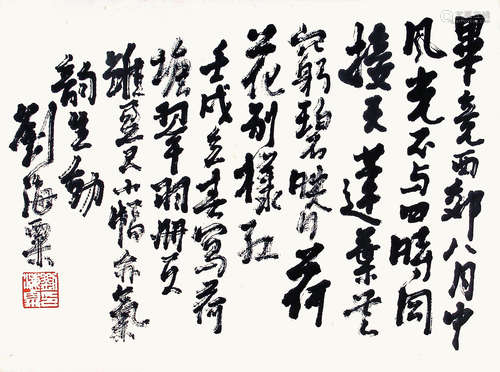 畢竟西郊八月中
風光不与四時同
接天蓮葉无
窮碧映日荷
花别樣紅
壬戌立春寫荷
塘翠羽册頁
雖盈尺小幅亦氣
韵生動
劉海粟